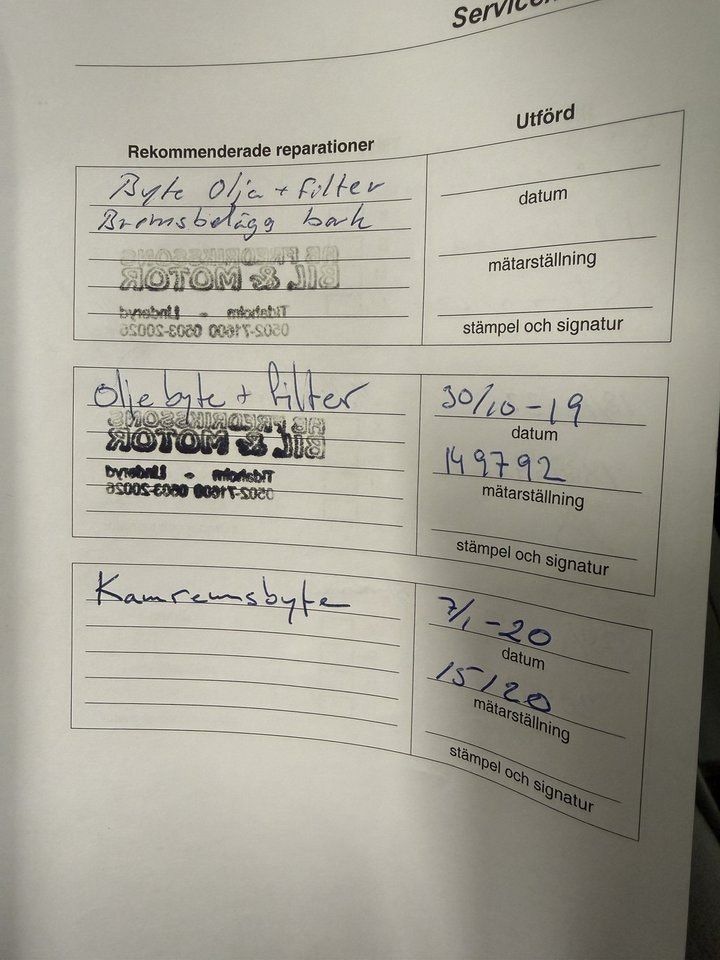 Rekommenderade reparationer
Utförd
Byte Olja + filter
Bromsbelägg bak
datum
mätarställning
stämpel och signatur
BIL & MOTOR
Tidaholm - Linderyd
0502-71600 0503-20026
Oljebyte + filter
30/10-19
datum
149792
mätarställning
stämpel och signatur
BIL & MOTOR
Tidaholm - Linderyd
0502-71600 0503-20026
Kamremsbyte
7/1-20
datum
15120
mätarställning
stämpel och signatur